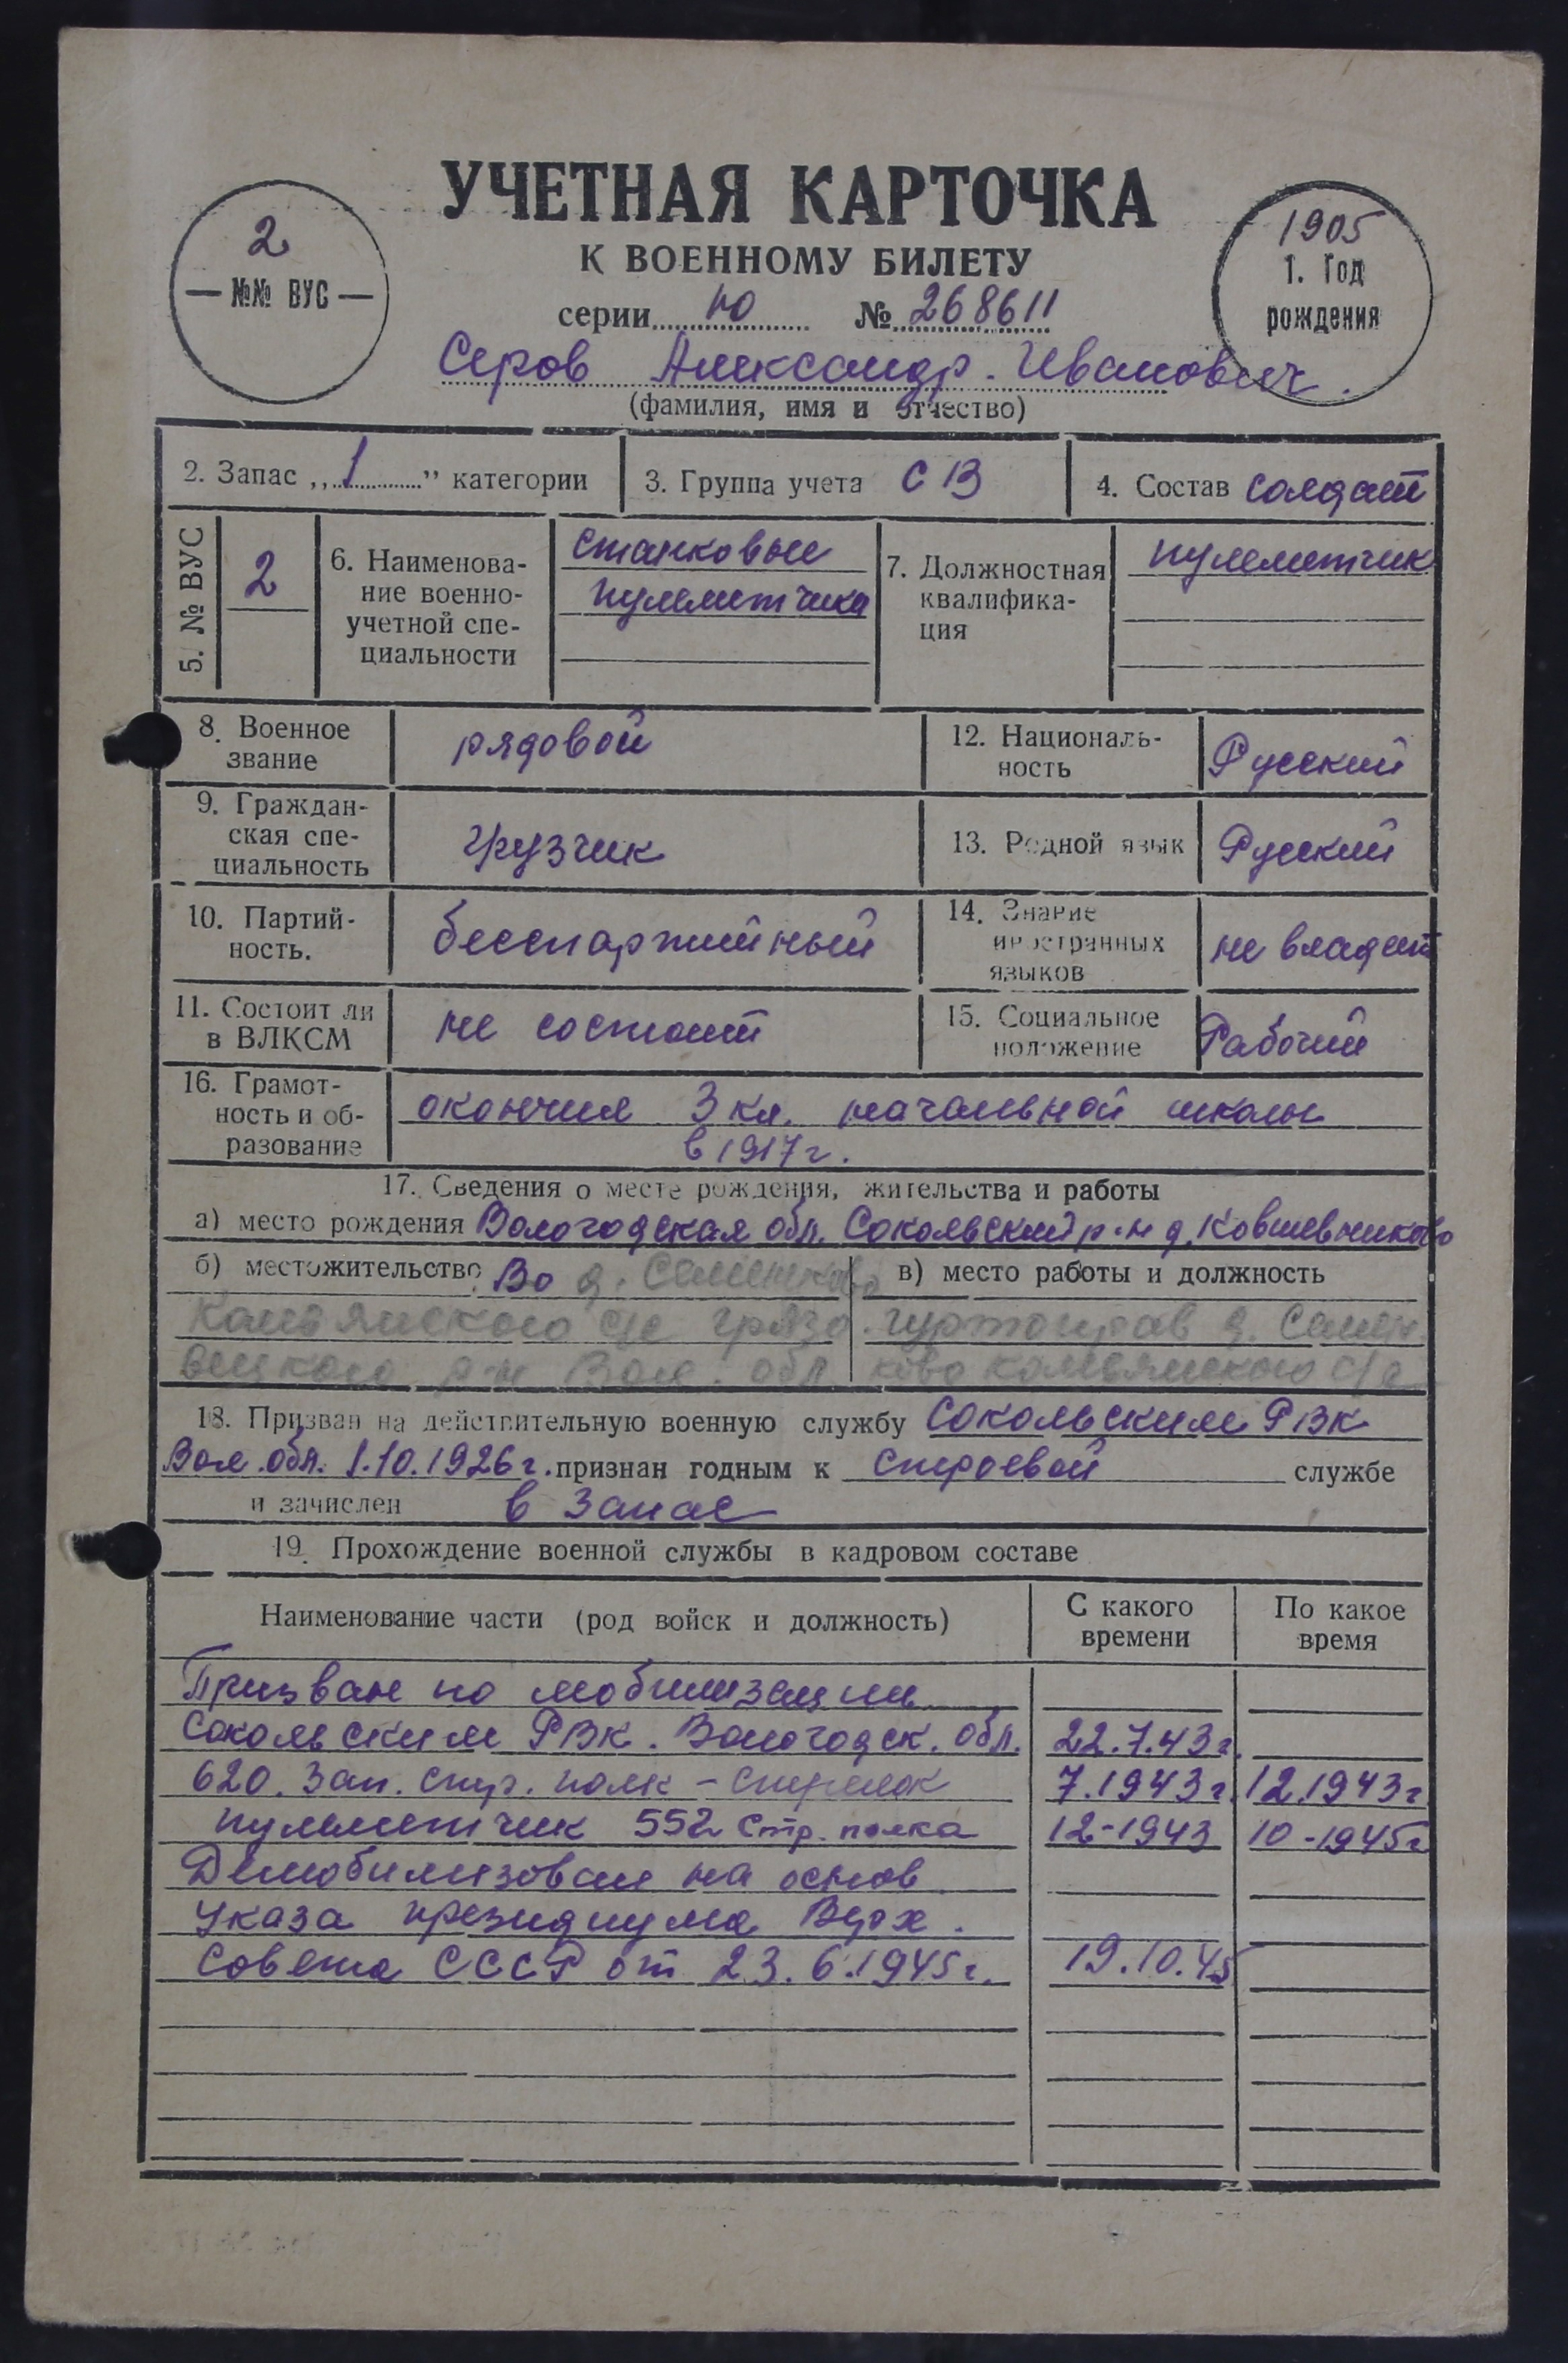 УЧЕТНАЯ КАРТОЧКА
К ВОЕННОМУ БИЛЕТУ
2
№№ ВУС
1905
1. Год
рождения
серии Ю № 268611
Серов Александр Иванович.
(фамилия, имя и отчество)
2. Запас „1” категории
3. Группа учета СВ
4. Состав солдат
5. № ВУС
2
6. Наименова-
ние военно-
учетной спе-
циальности
станковые
пулеметчики
7. Должностная
квалифика-
ция
пулеметчик
8. Военное
звание
рядовой
12. Националь-
ность
Русский
9. Граждан-
ская спе-
циальность
грузчик
13. Родной язык
Русский
10. Партий-
ность.
беспартийный
14. Знание
иностранных
языков
не владеет
11. Состоит ли
в ВЛКСМ
не состоит
15. Социальное
положение
Рабочий
16. Грамот-
ность и об-
разование
окончил 3 кл. начальной школы
в 1917 г.
17. Сведения о месте рождения, жительства и работы
а) место рождения Вологодская обл. Сокольский р-н д.
б) местожительство Во д. Семенково
с/с Грязо
вецкого р-н Вол. обл
в) место работы и должность
гуртоправ д. Семен
ково с/с
18. Призван на действительную военную службу Сокольским РВК
Вол. обл. 1.10.1926 г. признан годным к строевой службе
и зачислен в запас
19. Прохождение военной службы в кадровом составе
Наименование части (род войск и должность)
С какого
времени
По какое
время
Призван по мобилизации
Сокольским РВК. Вологодск. обл. 22.7.43 г.
620. Зап. стр. полк - стрелок 7.1943 г. 12.1943 г
пулеметчик 552 стр. полка 12-1943 10-1945 г
Демобилизован на основ
Указа президиума Верх.
Совета СССР от 23.6.1945 г. 19.10.45